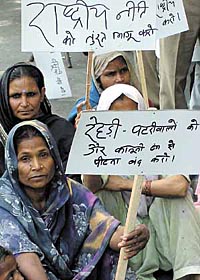 राष्ट्रीय नीति
को तुरंत लागू करो
रेहड़ी-पटरीवालों को
कानूनी से
पीटना बंद करो।